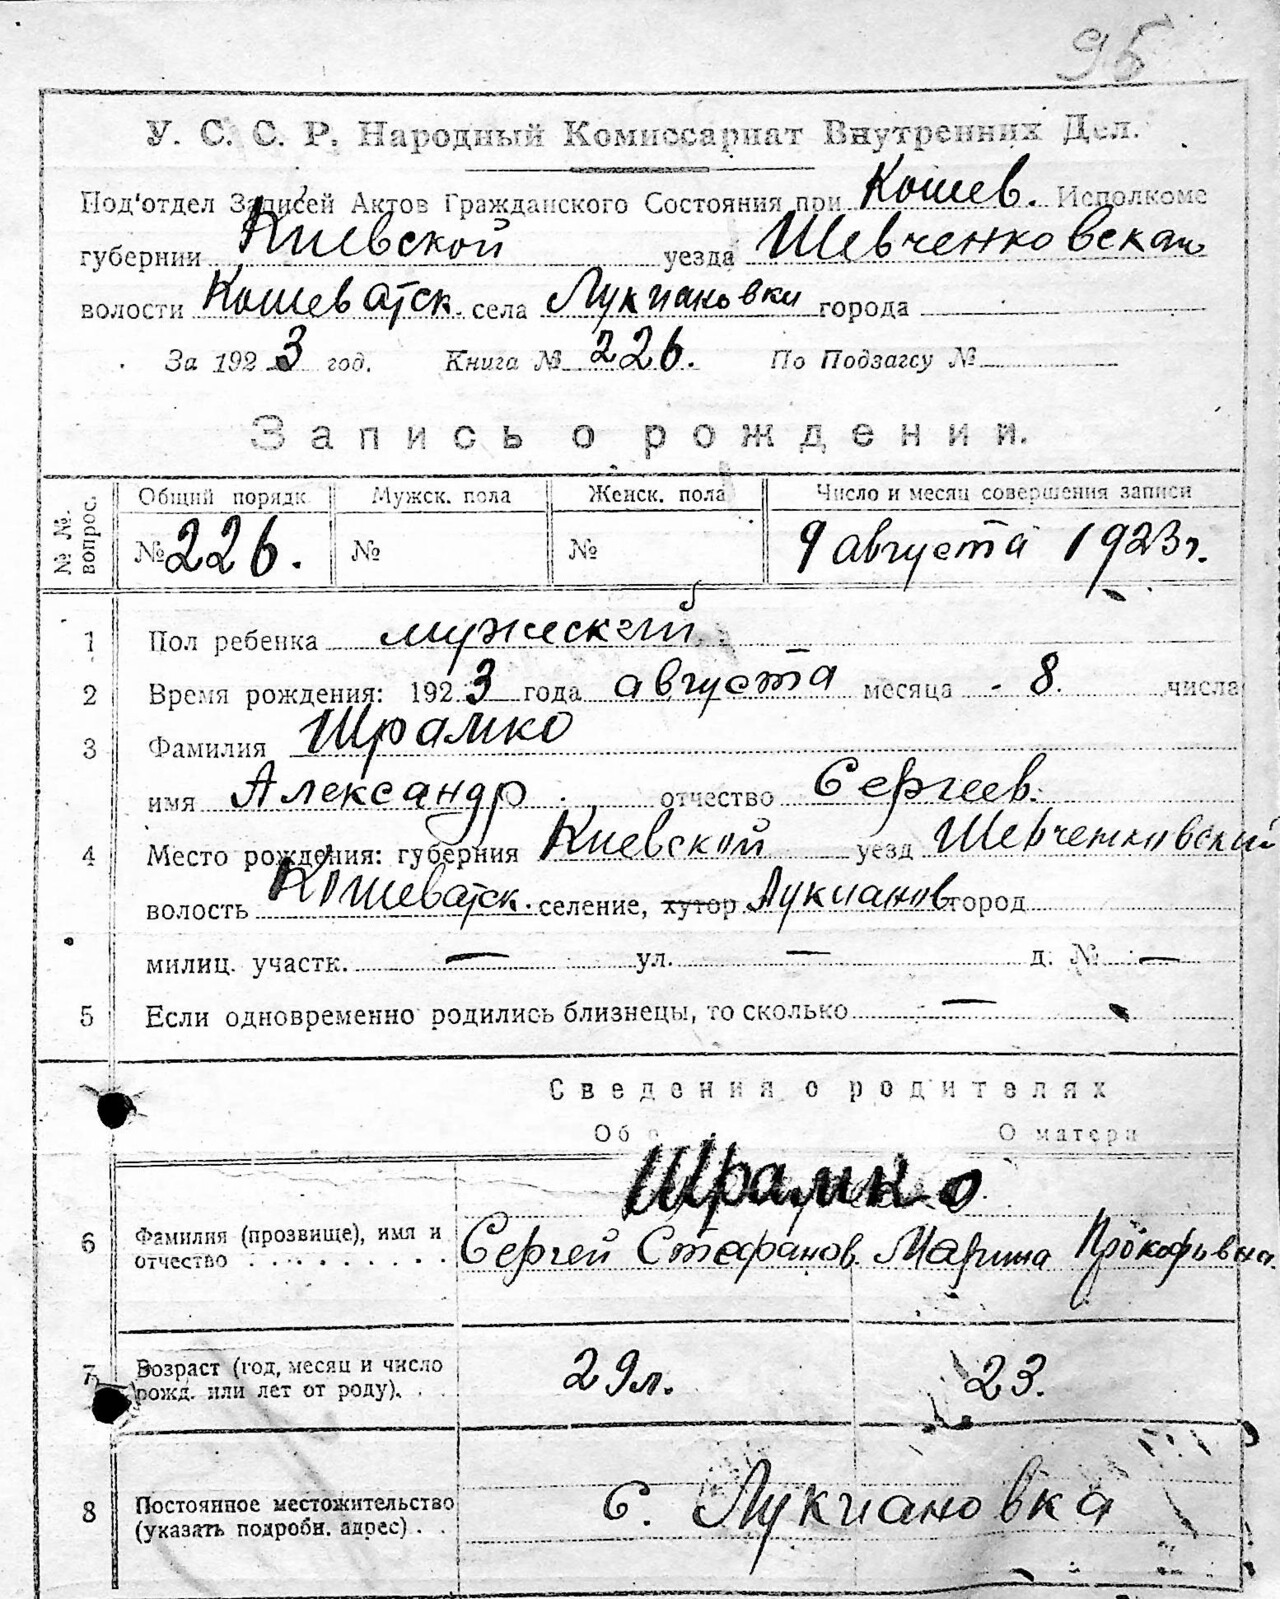 95
У. С. С. Р. Народный Комиссариат Внутренних Дел.
Под'отдел Записей Актов Гражданского Состояния при Кошев. Исполкоме
губернии Киевской уезда Шевченковская
волости Кошеватск. села Лукиановки города
За 1923 год. Книга № 226. По Подзагсу №
Запись о рождении.
№ № вопрос. Общий порядк. Мужск. пола Женск. пола Число и месяц совершения записи
№ 226. № № 9 августа 1923 г.
1 Пол ребенка мужеский
2 Время рождения: 1923 года августа месяца 8. числа
3 Фамилия Шрамко
имя Александр отчество Сергеев.
4 Место рождения: губерния Киевской уезд Шевченковский
волость Кошеватск. селение, хутор Лукианов город
милиц. участк. — ул. — д. № —
5 Если одновременно родились близнецы, то сколько —
Сведения о родителях
Об О матери
Шрамко
6 Фамилия (прозвище), имя и отчество Сергей Стефанов. Марина Прокофьвна.
7 Возраст (год, месяц и число рожд. или лет от роду). 29 л. 23.
8 Постоянное местожительство (указать подробн. адрес) с. Лукиановка